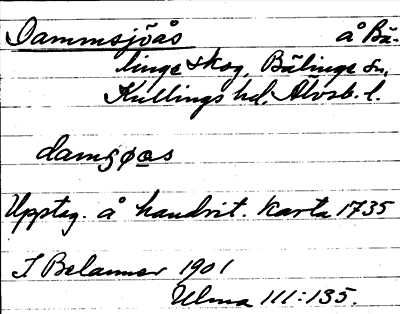 Dammsjöås å Bä-
linge skog, Bälinge sn,
Kullings hd, Älvsb. l.
damʂøas
Upptag. å handrit. karta 1735
I Belanner 1901
Ulma 111:135.